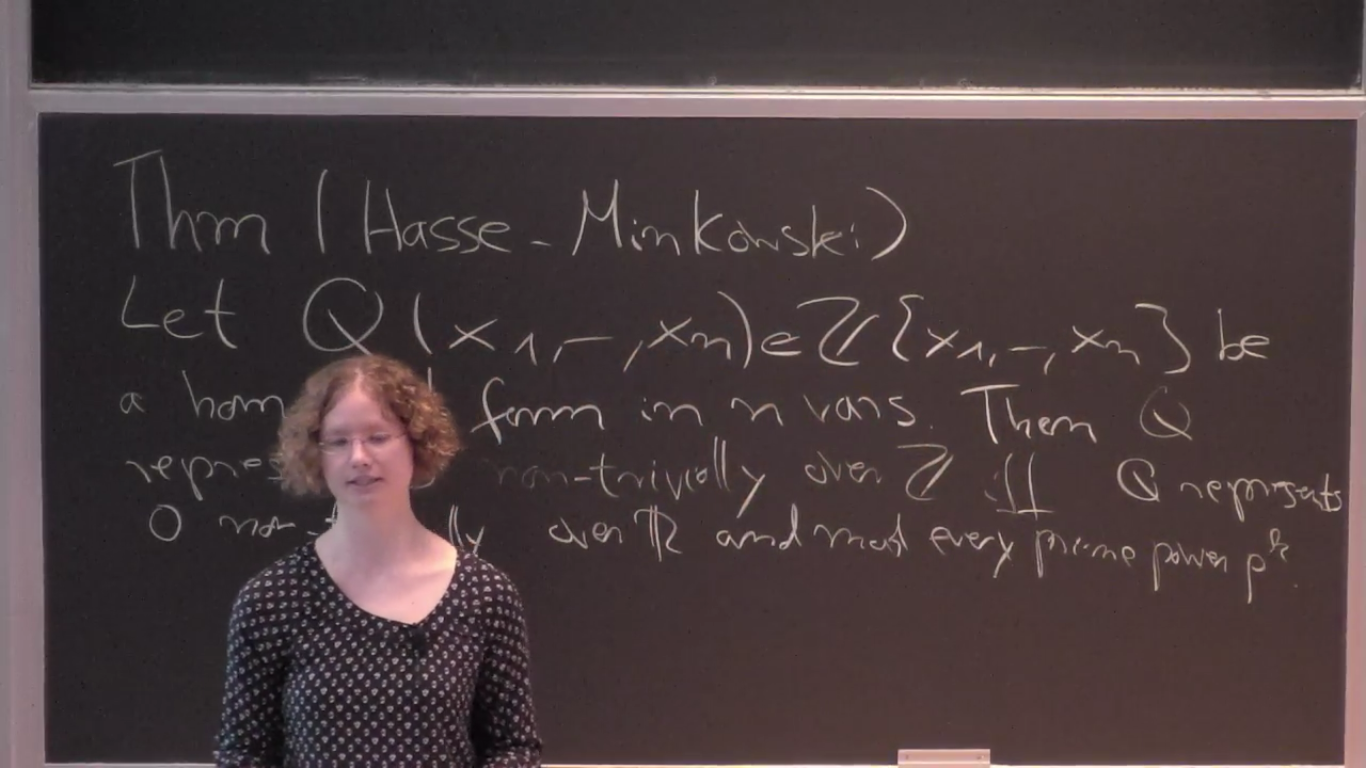 Thm (Hasse-Minkowski)
Let Q(x₁,-,xₙ)∈ℤ{x₁,-,xₙ} be
a hom form in n vars. Then Q
repres non-trivially over ℤ iff Q represents
0 non-t lly over ℝ and mod every prime power pᵏ.